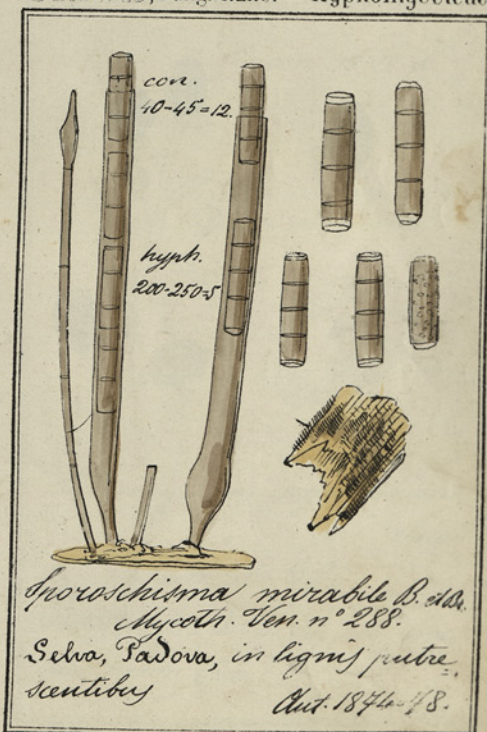 Hyphomyceteae
con.
40-45=12.
hyph.
200-250=5
Sporoschisma mirabile B. et Br.
Mycoth. Ven. n° 288.
Selva, Padova, in lignis putre=
scentibus
Aut. 1874-78.